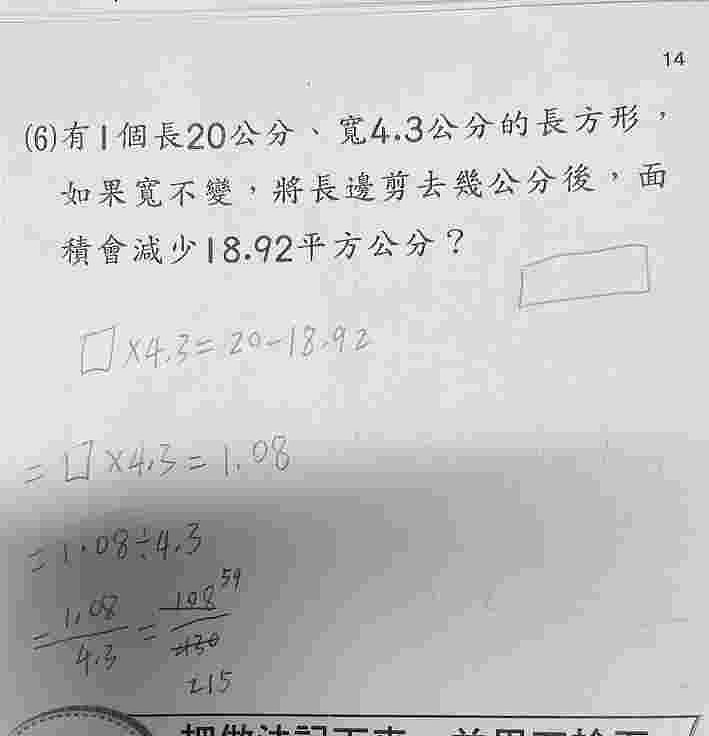 14
(6)有1個長20公分、寬4.3公分的長方形,
如果寬不變,將長邊剪去幾公分後,面
積會減少18.92平方公分?
□×4.3=20-18.92
=□×4.3=1.08
=1.08÷4.3
=1.08/4.3=108 59/430 215